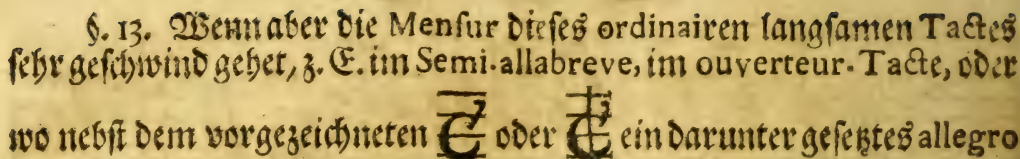 §. 13. Wenn aber die Mensur dieses ordinairen langsamen Tactes
sehr geschwind gehet, z. E. im Semi-allabreve, im ouverteur-Tacte, oder
wo nebst dem vorgezeichneten C oder ₵ ein darunter gesetztes allegro